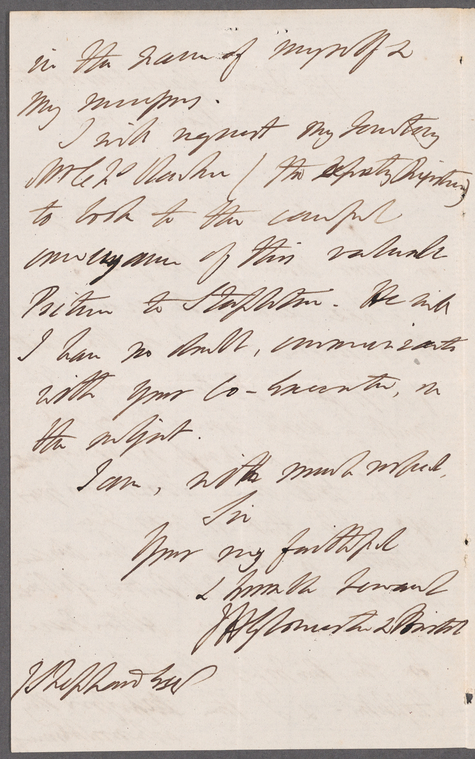 in the name of myself &
my successors.
I will request my Secretary
Mr (the Deputy Registrar)
to look to the careful
conveyance of this valuable
Picture to Stapleton. He will
I have no doubt, communicate
with your Co-Executor, on
the subject.
I am, with much respect,
Sir
Your very faithful
& humble Servant
J H Gloucester & Bristol
J Shephard Esq